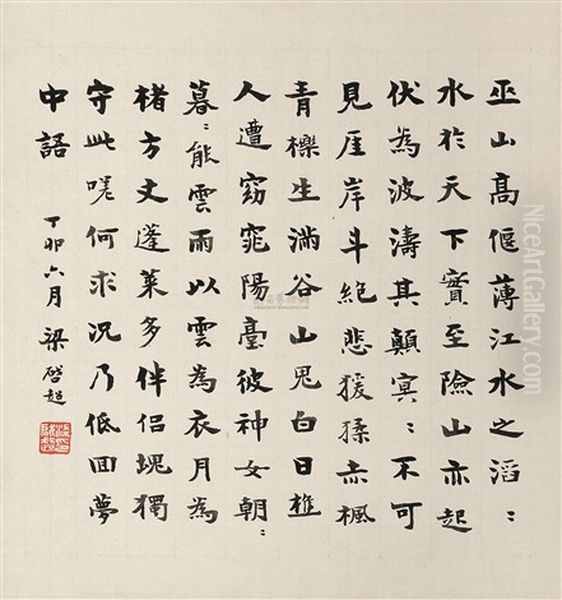 巫山高偃薄江水之滔〻
水於天下實至險山亦起
伏為波濤其顛冥〻不可
見厓岸斗絕悲猨猱赤楓
青櫟生滿谷山鬼白日樵
人遭窈窕陽臺彼神女朝〻
暮〻能雲雨以雲為衣月為
楮方丈蓬萊多伴侶塊獨
守此嗟何求況乃低回夢
中語
丁卯六月梁啓超
NiceArtGallery.com